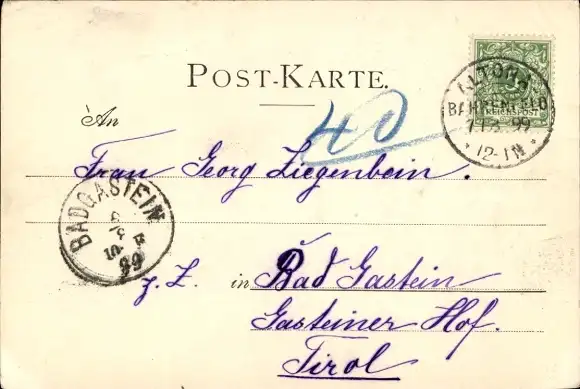 POST-KARTE.
REICHSPOST
ALTONA
BAHRENFELD
99
*12-1N*
40
An
Frau Georg Ziegenbein.
BADGASTEIN
99
z. Z. in Bad Gastein
Gasteiner Hof.
Tirol